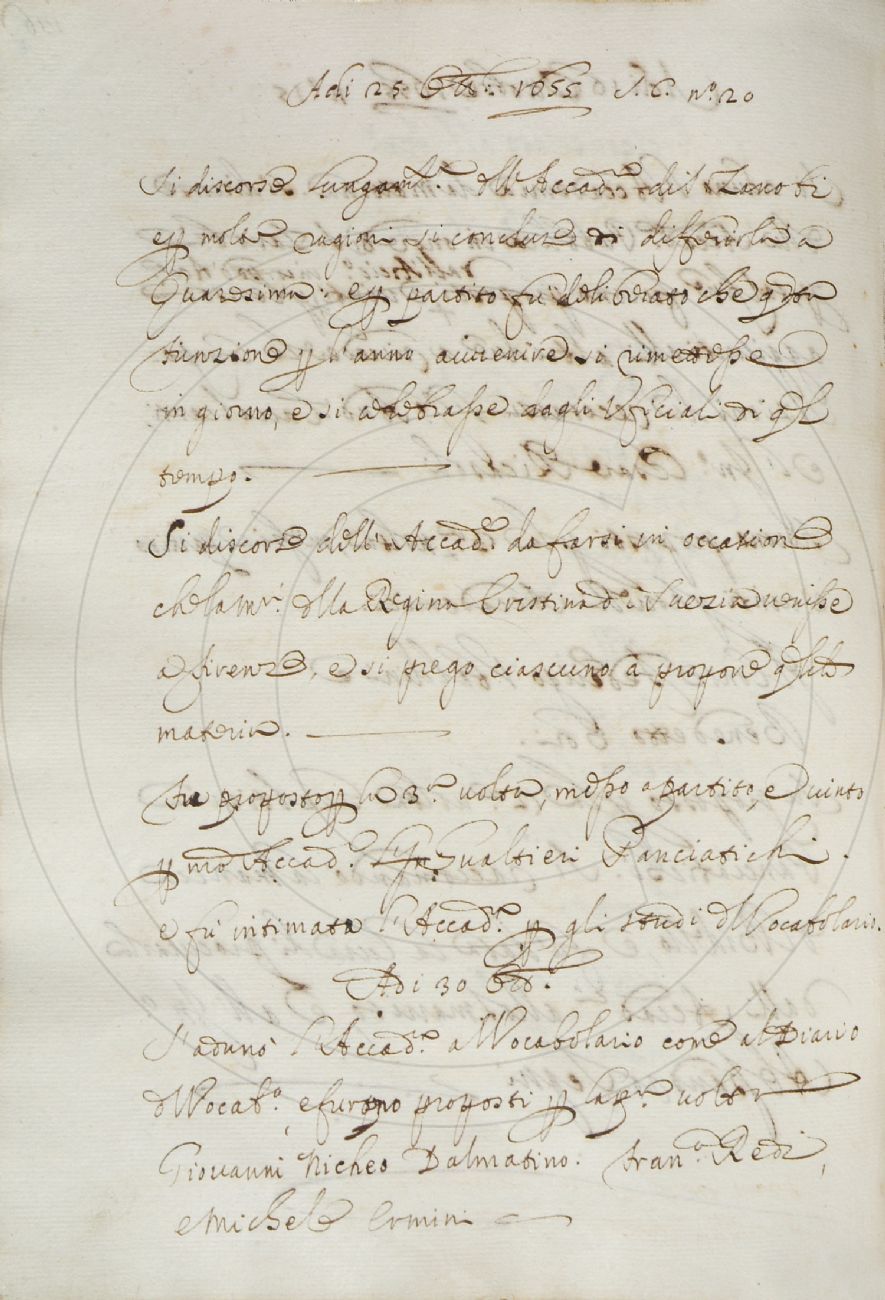 Adi 25 Ott.e 1655 S. C. n.o 20
Si discorse lungam.te dell'Accad.a del
p molte ragioni si concluse di differirla a
Quaresima: e p partito fu deliberato che q.sta
funzione p l'anno avvenire si rimettesse
in giorno, e si celebrasse dagli Vficiali di q.l
tempo.
Si discorse dell'Accad.a da farsi in occasione
che la M.tà della Regina Cristina di Suezia venisse
a Firenze, e si pregò ciascuno a proporre
materia.
Fu proposto p la 3.a volta, messo a partito, e vinto
p Accad.o Gualtieri Panciatichi.
e fu intimata l'Accad.a p gli studi del Vocabolario.
Adi 30 Ott.e
S'adunò l'Accad.a al Vocabolario come al Diario
del Vocab.o, e furono proposti p la volta
Giovanni Dalmatino. Fran.o Redi,
e Michele Ermini